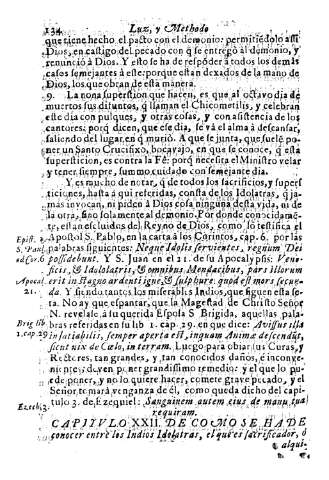 134 Luz, y Methodo
que tiene hecho el pacto con el demonio: permitiẽdolo assi
Dios, en castigo del pecado con q̃ se entregò al demonio, y
renunciò à Dios. Y esto se ha de respõder à todos los demàs
casos semejantes à este: porque estan dexados de la mano de
Dios, los que obran desta manera.
9. La nona supersticion que hacen, es que al octavo dia de
muertos sus difuntos, q̃ llaman el Chicometilis, y celebran
este dia con pulques, y otras cosas, y con asistencia de los
cantores: porq̃ dicen, que ese dia, se và el alma à descansar,
saliendo del lugar, en q̃ muriò. A que se junta, que suele poner
un Santo Crucifixo, bocabajo, en que se conoce, q̃ està
supersticion, es contra la Fè: porq̃ necesita el Ministro velar
y tener siempre, summo cuidado con semejante dia.
Y es mucho de notar, q̃ de todos los sacrificios, y supersticiones,
hasta aqui referidas, consta de los Idolatras, q̃ jamàs
invocan, ni piden à Dios cosa ninguna desta vida, ni de
la otra, sino solamente al demonio. Por donde conocidamẽte,
estan escluidos del Reyno de Dios, como lo testifica el
Epist. 2. Apostol S. Pablo, en la carta à los Corintos, cap. 6. por las
S. Paul. palabras siguientes: Neque Idolis servientes, regnum Dei
ad Cor. 6. possidebunt. Y S. Juan en el 21. de su Apocalypsis: Veneficis,
Apocal. & Idololatris, & omnibus Mendacibus, pars illorum
21. erit in stagno ardenti igne, & sulphure: quod est mors secunda.
Y siendo tantos los miserables Indios, que siguen esta secta.
No ay que espantar, que la Magestad de Christo Señor
N. revelase, à su querida Esposa S Brigida, aquellas palabras
Brig lib. referidas en su lib 1. cap. 29. en que dice: Avissus illa
1. cap. 29 insatiabilis, semper aperta est, in quam Animæ descendũt,
sicut nix de Cœlo, in terram. Luego para obiar, los Curas, y
Rectores, tan grandes, y tan conocidos daños, è inconvenientes,
deven poner grandissimo remedio: y el que lo puede
poner, y no lo quiere hacer, comete grave pecado, y el
Señor tomarà venganza de èl, como queda dicho del capitulo
Ezech. 3. 3. de Ezequiel: Sanguinem autem eius de manu tua
requiram.
CAPITVLO XXII. DE COMO SE HA DE
conocer entre los Indios Idolatras, el que es sacrificador, ò
alqui-